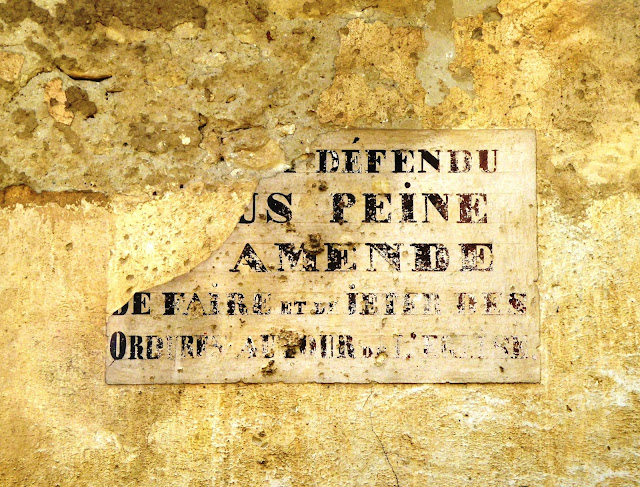 T DÉFENDU
US PEINE
AMENDE
DE FAIRE ET DE JETER DES
ORDURES AUTOUR DE L'EGLISE.